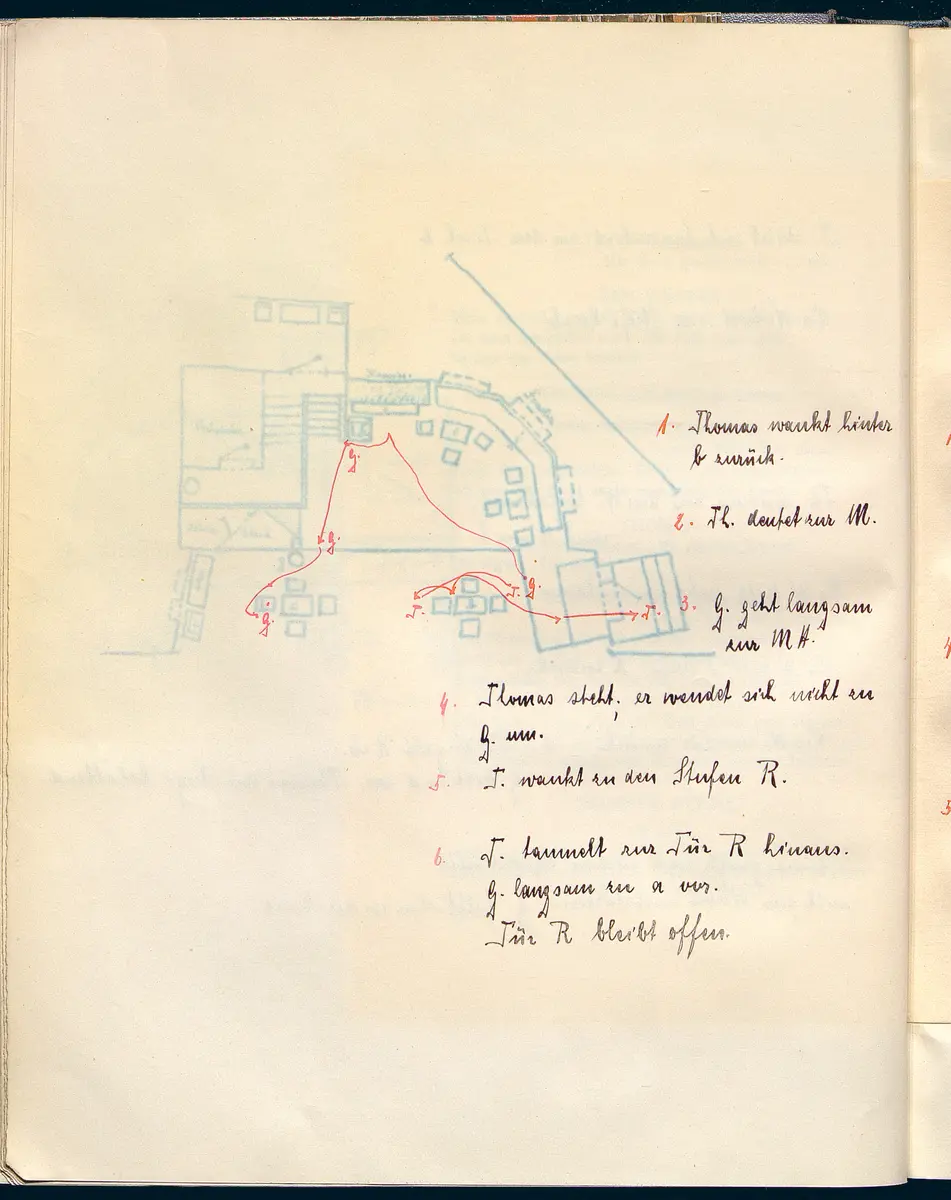 G.
G.
G.
T.
T.
G.
T.
1. Thomas wankt hinter
b zurück.
2. Th. deutet zur M.
3. G. geht langsam
zur M H.
4. Thomas steht, er wendet sich nicht zu
G. um.
5. T. wankt zu den Stufen R.
6. T. taumelt zur Tür R hinaus.
G. langsam zu a vor.
Tür R bleibt offen.